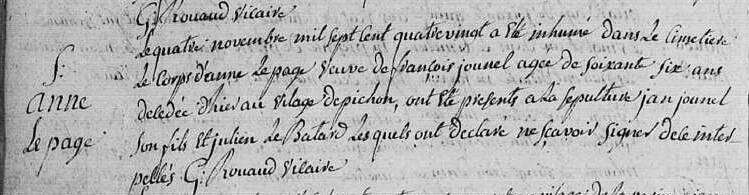 G. Rouaud Vicaire
Le quatre novembre mil sept cent quatre vingt a êté inhumé dans Le Cimetiere
S.
anne
Le page
Le Corps d'anne Le page veuve de françois jounel agée de soixante six ans
dcedée d'hier au vilage de pichon, ont êté présents a La sepulture jan jounel
son fils Et julien Le Batard Lesquels ont declaré ne sçavoir signer de le inter-
pellés G. Rouaud Vicaire